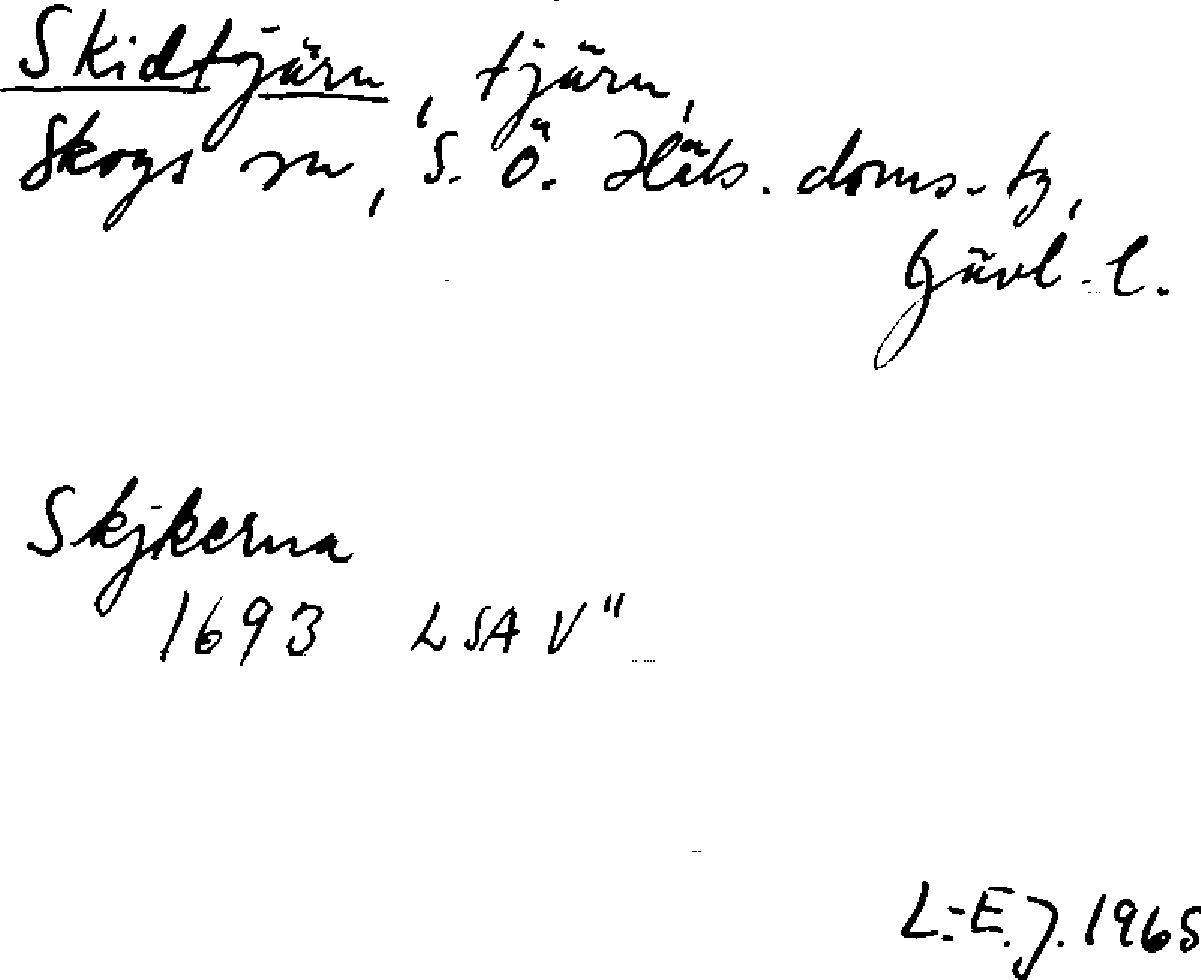 Skidtjärn, tjärn,
Skogs sn, S. Ö. Häls. doms-tg,
Gävl. l.
Skjkerna
1693 LSA V"
L.-E. J. 1965